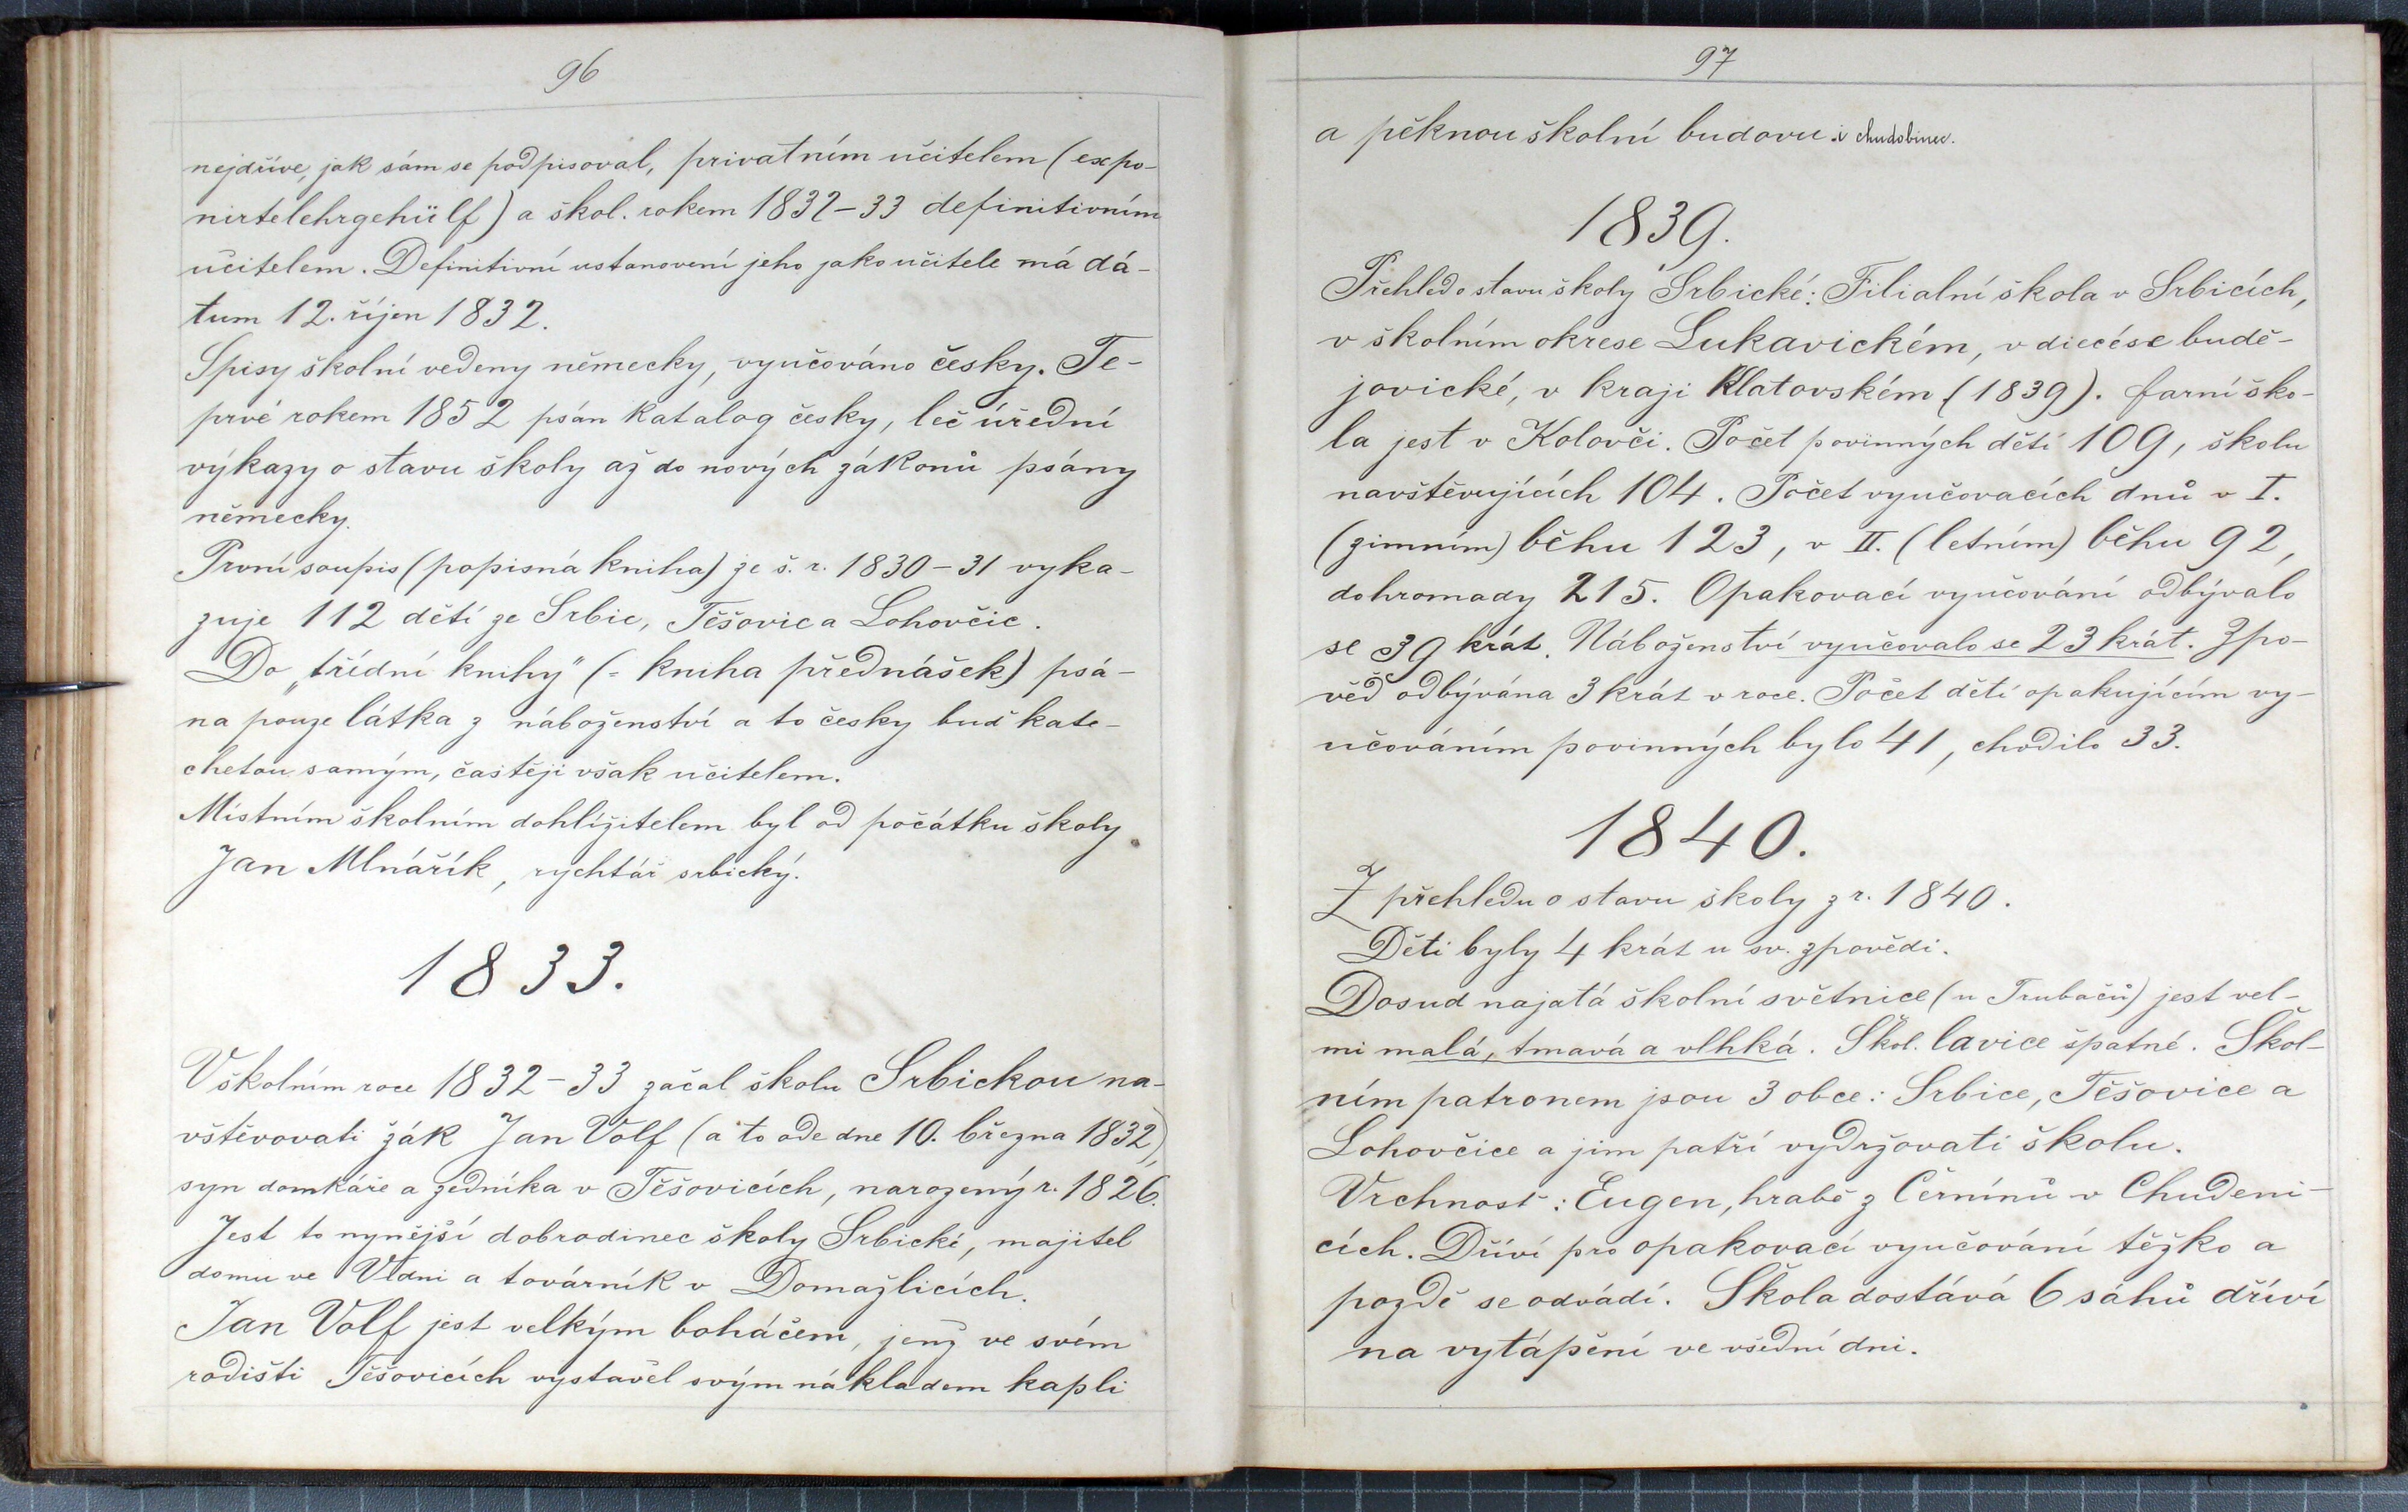 96
nejdříve, jak sám se podpisoval, privatním učitelem (expo-
nirtelehrgehülf) a škol. rokem 1832-33 definitivním
učitelem. Definitivní ustanovení jeho jako učitele má dá-
tum 12. říjen 1832.
Spisy školní vedeny německy, vyučováno česky. Te-
prvé rokem 1852 psán katalog česky, leč úřední
výkazy o stavu školy až do nových zákonů psány
německy.
První soupis (popisná kniha) ze š. r. 1830-31 vyka-
zuje 112 dětí ze Srbic, Těšovic a Lohovčic.
Do „třídní knihy" (= kniha přednášek) psá-
na pouze látka z náboženství a to česky buď kate-
chetou samým, častěji však učitelem.
Místním školním dohlížitelem byl od počátku školy
Jan Mlnářík, rychtář srbický.
1833.
V školním roce 1832-33 začal školu Srbickou na-
vštěvovati žák Jan Volf (a to ode dne 10. března 1832),
syn domkáře a zedníka v Těšovicích, narozený r. 1826.
Jest to nynější dobrodinec školy Srbické, majitel
domu ve Vídni a továrník v Domažlicích.
Jan Volf jest velkým boháčem, jenž ve svém
rodišti Těšovicích vystavěl svým nákladem kapli
97
a pěknou školní budovu i chudobinec.
1839.
Přehled o stavu školy Srbické: Filialní škola v Srbicích,
v školním okrese Lukavickém, v diecése budě-
jovické, v kraji Klatovském (1839). farní ško-
la jest v Kolovči. Počet povinných dětí 109, školu
navštěvujících 104. Počet vyučovacích dnů v I.
(zimním) běhu 123, v II. (letním) běhu 92,
dohromady 215. Opakovací vyučování odbývalo
se 39 krát. Náboženství vyučovalo se 23 krát. Zpo-
věď odbývána 3 krát v roce. Počet dětí opakujícím vy-
učováním povinných bylo 41, chodilo 33.
1840.
Z přehledu o stavu školy z r. 1840.
Děti byly 4 krát u sv. zpovědi.
Dosud najatá školní světnice (u Trubačů) jest vel-
mi malá, tmavá a vlhká. Škol. lavice špatné. Škol-
ním patronem jsou 3 obce: Srbice, Těšovice a
Lohovčice a jim patří vydržovati školu.
Vrchnost: Eugen, hrabě z Černínů v Chudeni-
cích. Dříví pro opakovací vyučování těžko a
pozdě se odvádí. Škola dostává 6 sáhů dříví
na vytápění ve všední dni.